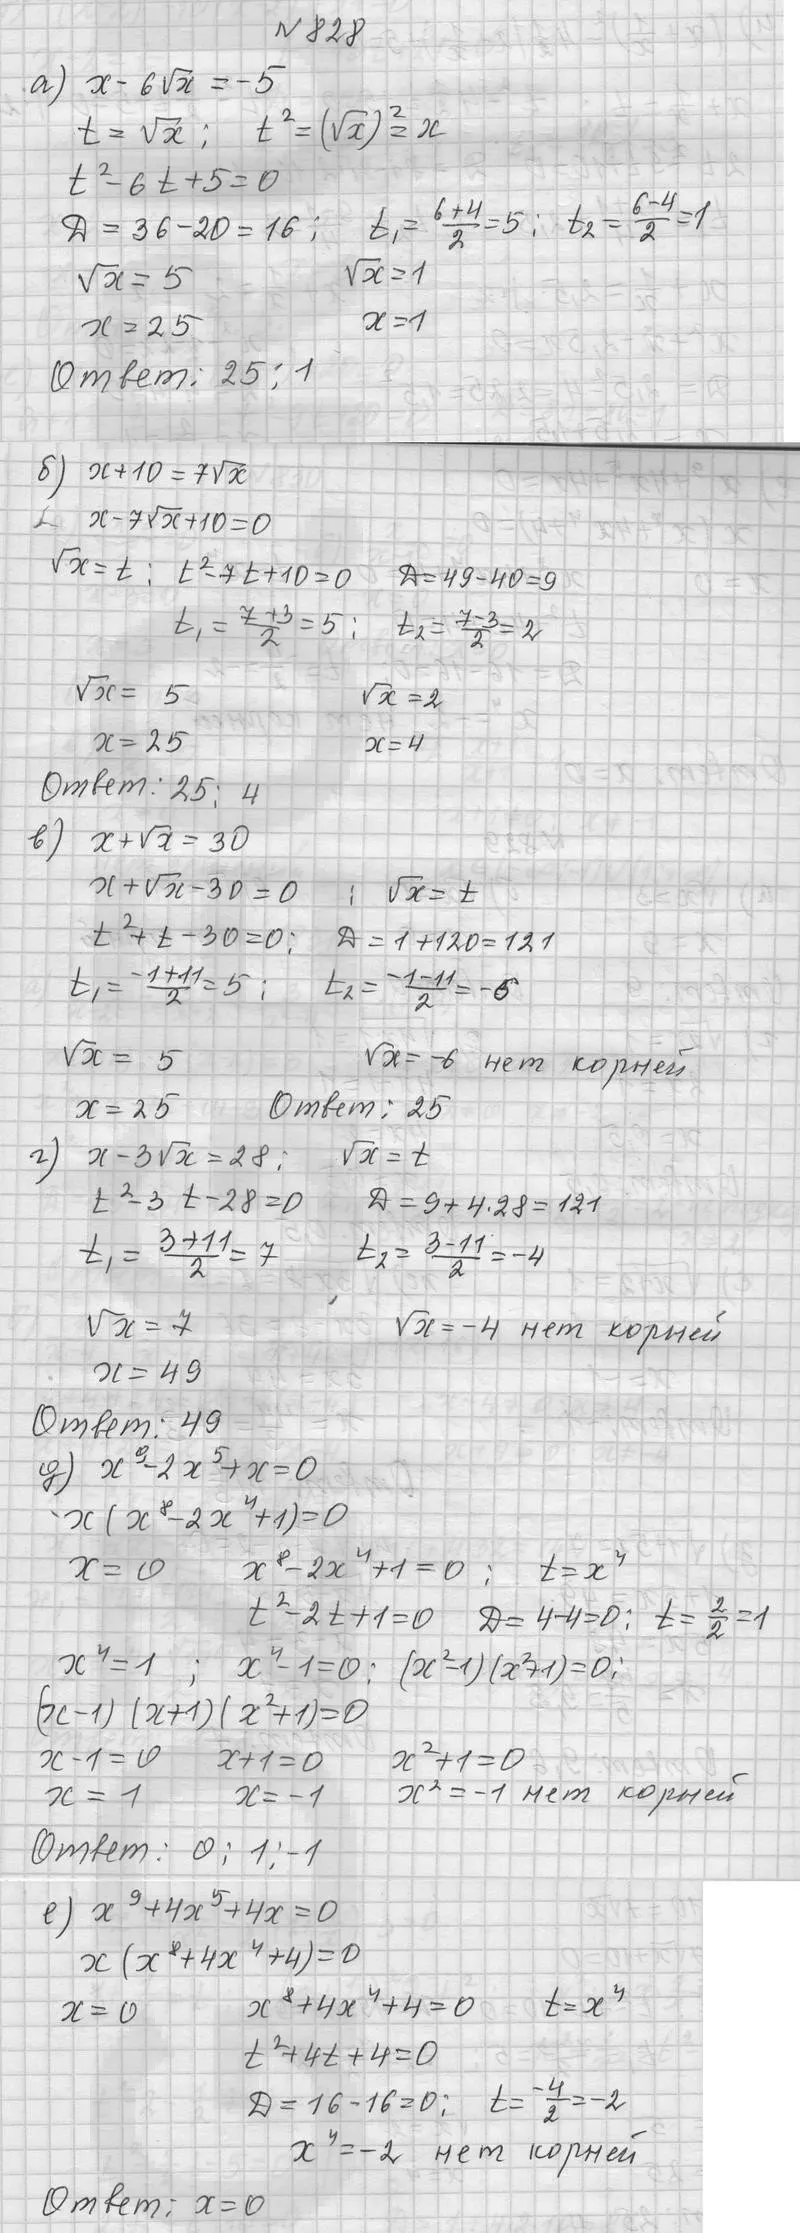 №828
а) x - 6√x = -5
t = √x ; t² = (√x)² = x
t² - 6t + 5 = 0
Д = 36 - 20 = 16 ; t₁ = (6+4)/2 = 5 ; t₂ = (6-4)/2 = 1
√x = 5 √x = 1
x = 25 x = 1
Ответ: 25 ; 1
б) x + 10 = 7√x
x - 7√x + 10 = 0
√x = t ; t² - 7t + 10 = 0 Д = 49 - 40 = 9
t₁ = (7+3)/2 = 5 ; t₂ = (7-3)/2 = 2
√x = 5 √x = 2
x = 25 x = 4
Ответ: 25 ; 4
в) x + √x = 30
x + √x - 30 = 0 ; √x = t
t² + t - 30 = 0 ; Д = 1 + 120 = 121
t₁ = (-1+11)/2 = 5 ; t₂ = (-1-11)/2 = -6
√x = 5 √x = -6 нет корней
x = 25 Ответ: 25
г) x - 3√x = 28 ; √x = t
t² - 3t - 28 = 0 Д = 9 + 4·28 = 121
t₁ = (3+11)/2 = 7 t₂ = (3-11)/2 = -4
√x = 7 √x = -4 нет корней
x = 49
Ответ: 49
д) x⁹ - 2x⁵ + x = 0
x (x⁸ - 2x⁴ + 1) = 0
x = 0 x⁸ - 2x⁴ + 1 = 0 ; t = x⁴
t² - 2t + 1 = 0 Д = 4 - 4 = 0 ; t = 2/2 = 1
x⁴ = 1 ; x⁴ - 1 = 0 ; (x² - 1) (x² + 1) = 0 ;
(x - 1) (x + 1) (x² + 1) = 0
x - 1 = 0 x + 1 = 0 x² + 1 = 0
x = 1 x = -1 x² = -1 нет корней
Ответ: 0 ; 1 ; -1
е) x⁹ + 4x⁵ + 4x = 0
x (x⁸ + 4x⁴ + 4) = 0
x = 0 x⁸ + 4x⁴ + 4 = 0 t = x⁴
t² + 4t + 4 = 0
Д = 16 - 16 = 0 ; t = -4/2 = -2
x⁴ = -2 нет корней
Ответ: x = 0